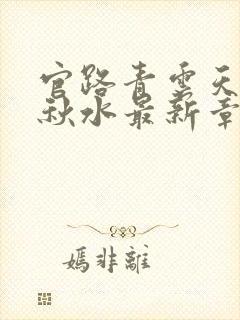 官路青云天
秋水最新章
嫣非離